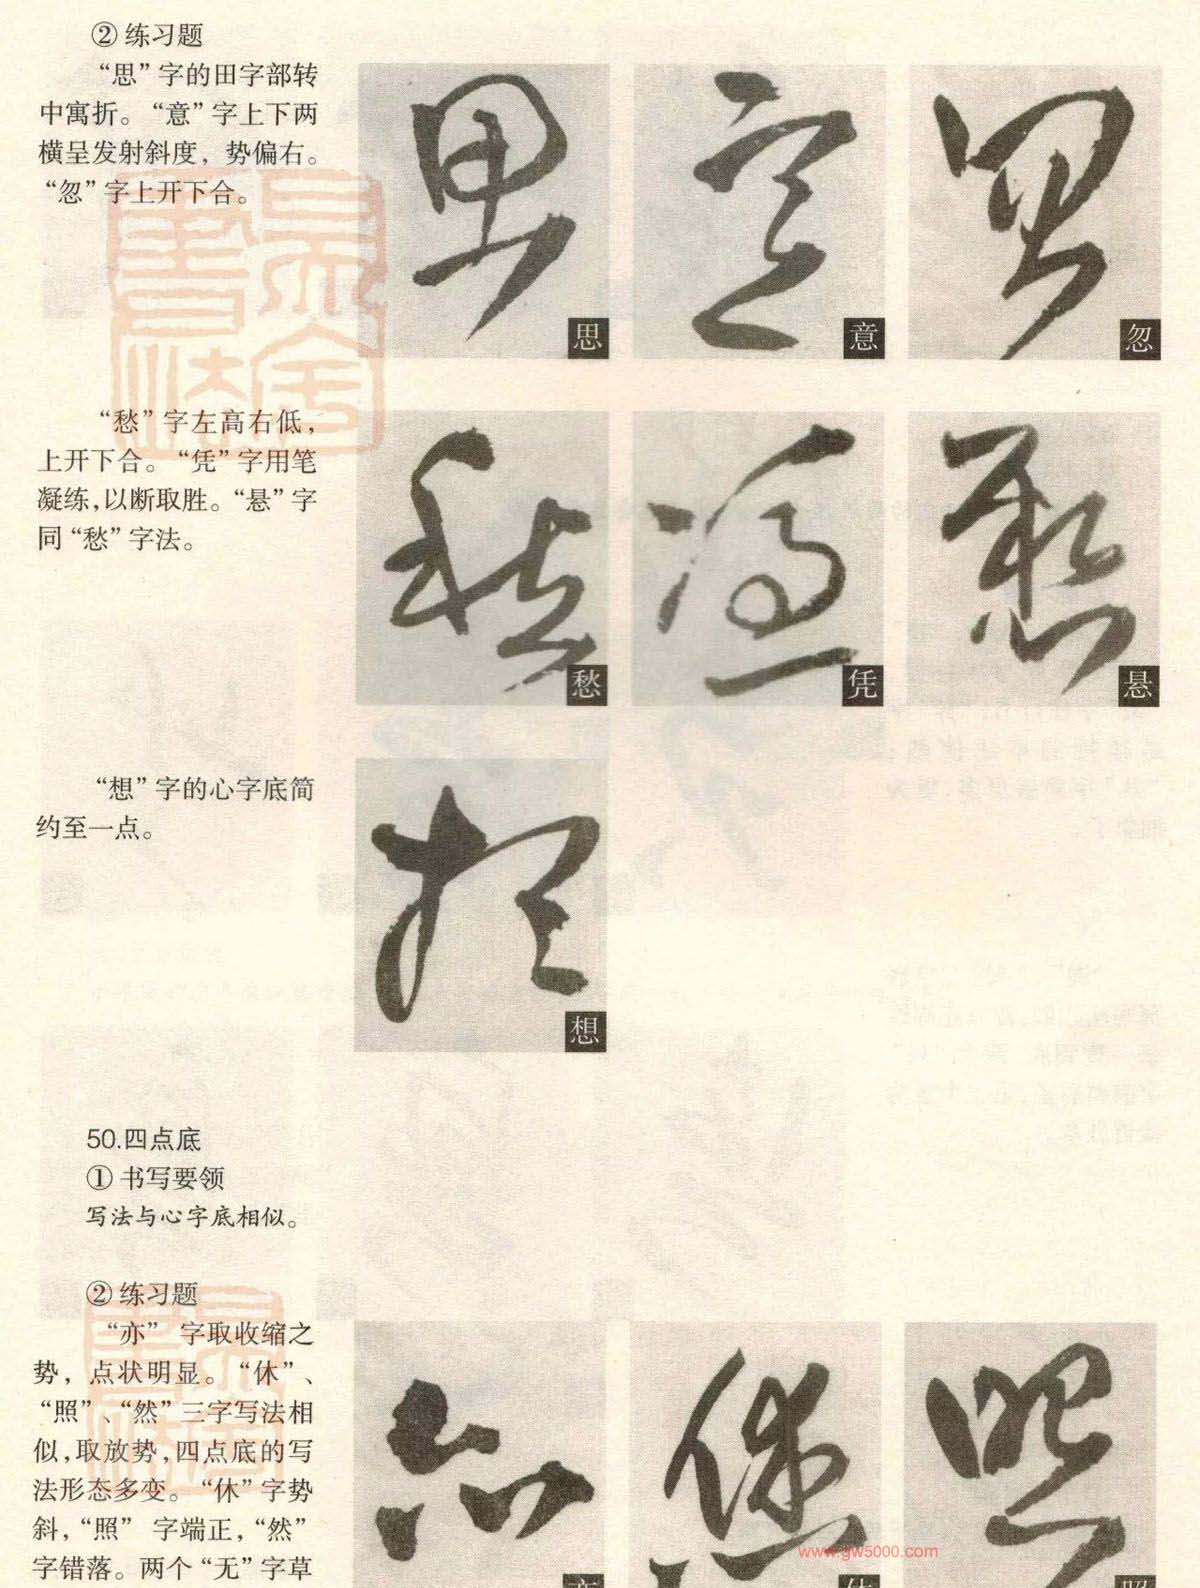 ② 练习题
“思”字的田字部转
中寓折。“意”字上下两
横呈发射斜度，势偏右。
“忽”字上开下合。
思
意
忽
“愁”字左高右低，
上开下合。“凭”字用笔
凝练，以断取胜。“悬”字
同“愁”字法。
愁
凭
悬
“想”字的心字底简
约至一点。
想
50.四点底
① 书写要领
写法与心字底相似。
② 练习题
“亦” 字取收缩之
势，点状明显。“休”、
“照”、“然”三字写法相
似，取放势，四点底的写
法形态多变。“休”字势
斜，“照” 字端正，“然”
字错落。两个“无”字草
亦
休
照
www.gw5000.com